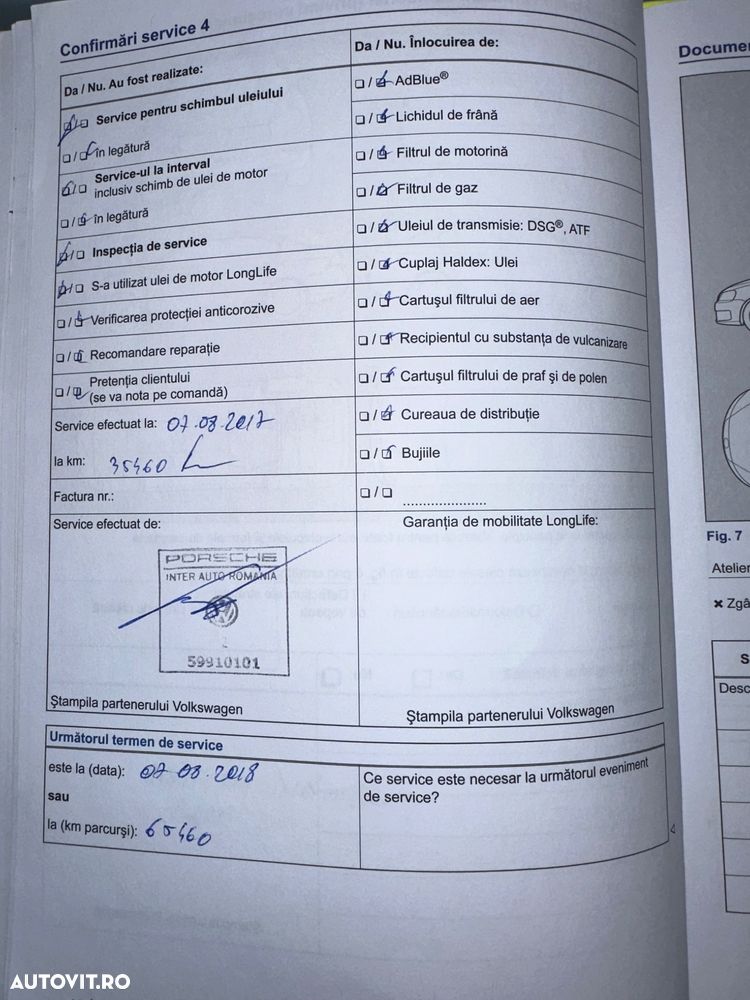 Confirmări service 4
Da / Nu. Au fost realizate:
Service pentru schimbul uleiului
în legătură
Service-ul la interval
inclusiv schimb de ulei de motor
în legătură
Inspecția de service
S-a utilizat ulei de motor LongLife
Verificarea protecției anticorozive
Recomandare reparație
Pretenția clientului
(se va nota pe comandă)
Service efectuat la: 07.08.2017
la km: 35460
Factura nr.:
Service efectuat de:
PORSCHE
INTER AUTO ROMANIA
2
59910101
Ștampila partenerului Volkswagen
Da / Nu. Înlocuirea de:
AdBlue®
Lichidul de frână
Filtrul de motorină
Filtrul de gaz
Uleiul de transmisie: DSG®, ATF
Cuplaj Haldex: Ulei
Cartușul filtrului de aer
Recipientul cu substanța de vulcanizare
Cartușul filtrului de praf și de polen
Cureaua de distribuție
Bujiile
......................
Garanția de mobilitate LongLife:
Ștampila partenerului Volkswagen
Următorul termen de service
este la (data): 07.08.2018
sau
la (km parcurși): 65460
Ce service este necesar la următorul eveniment
de service?
Fig. 7
AUTOVIT.RO